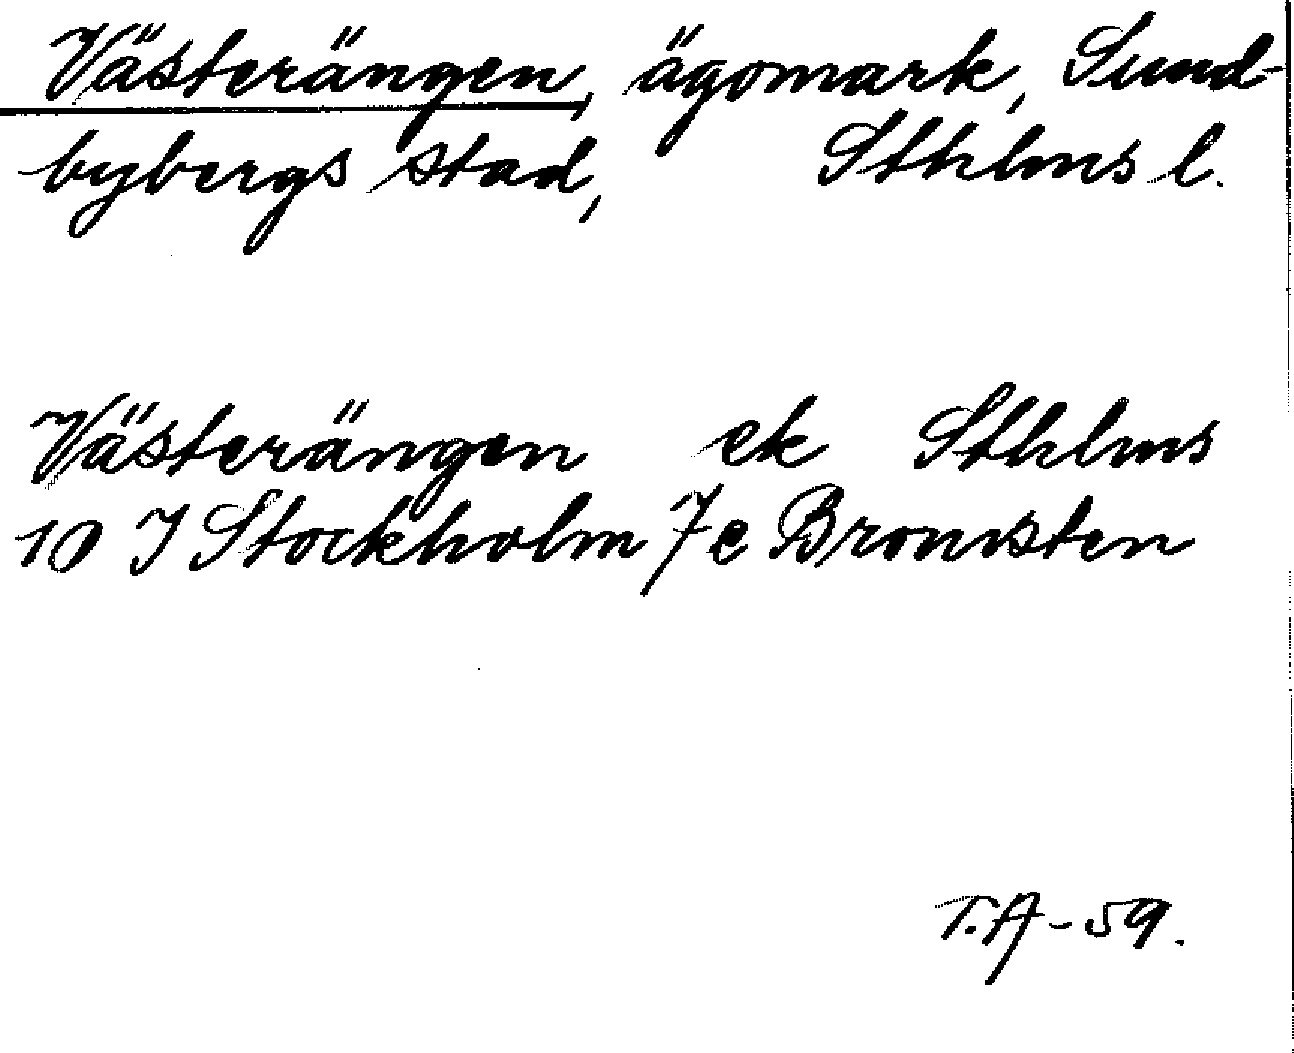 Västerängen, ägomark, Sund-
bybergs stad, Sthlms l.
Västerängen ek Sthlms
10 I Stockholm 7 e Bromsten
T.A-59.